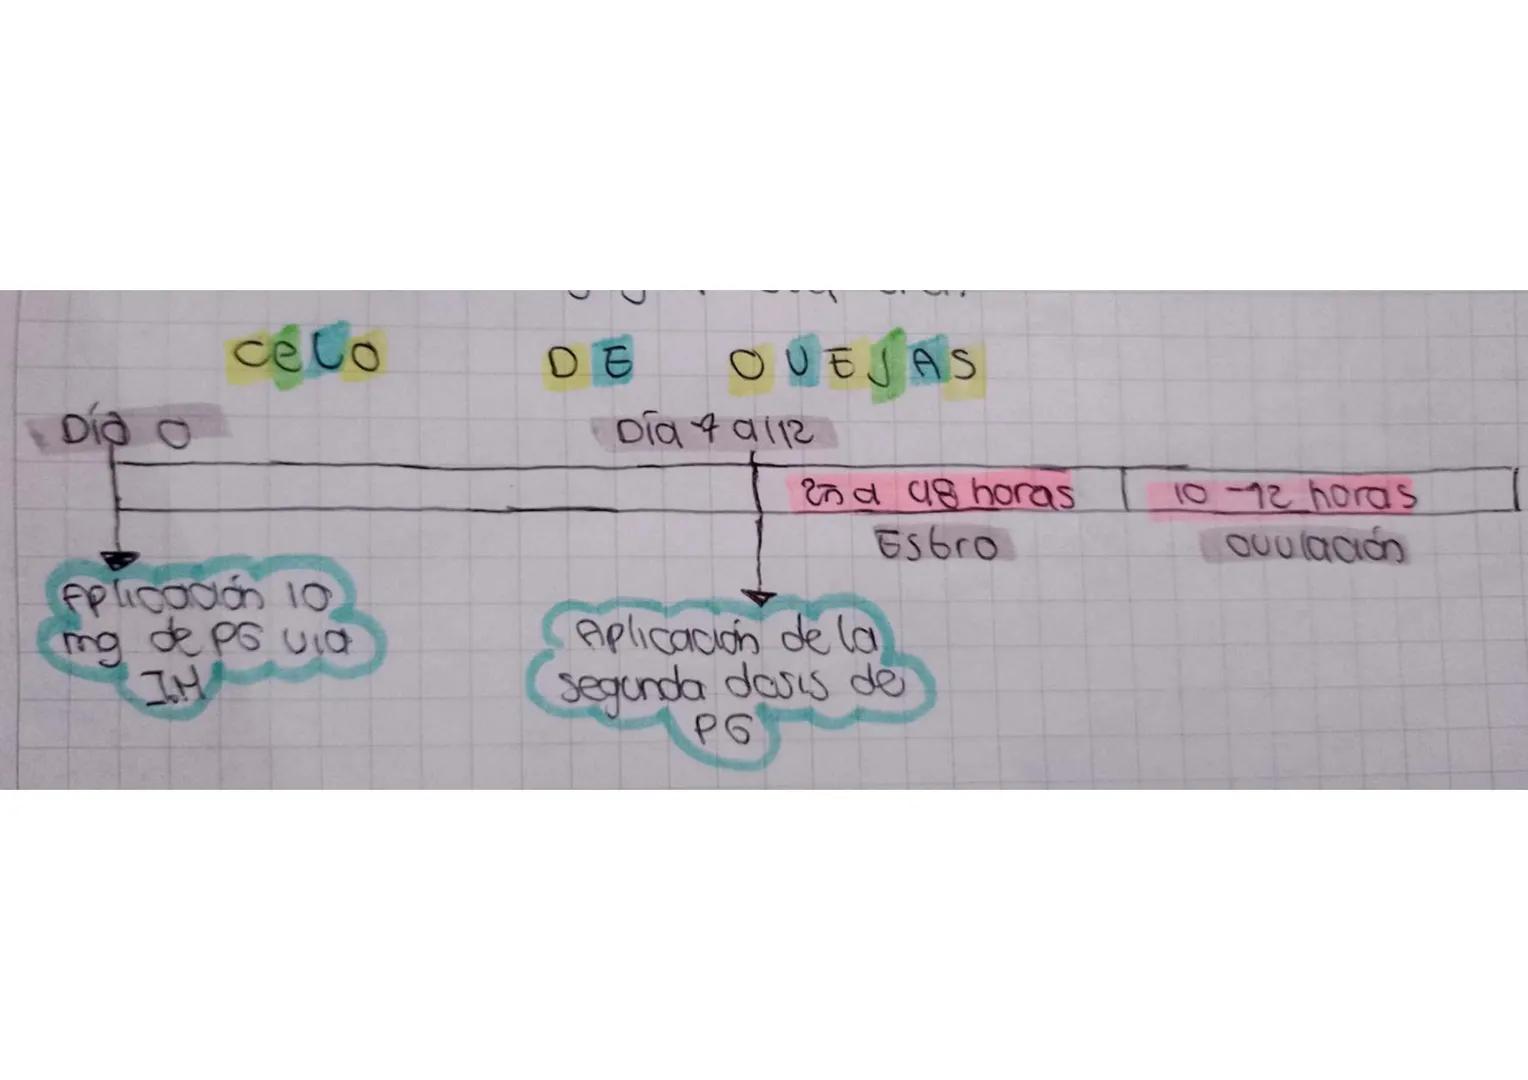 CeLO DE OVEJAS
Día 0
Día 7 al 12
a 48 horas
10 - 12 horas
Estro
Ovulación
Aplicación 10
mg de PG via
I.M
Aplicación de la
segunda dosis de
PG